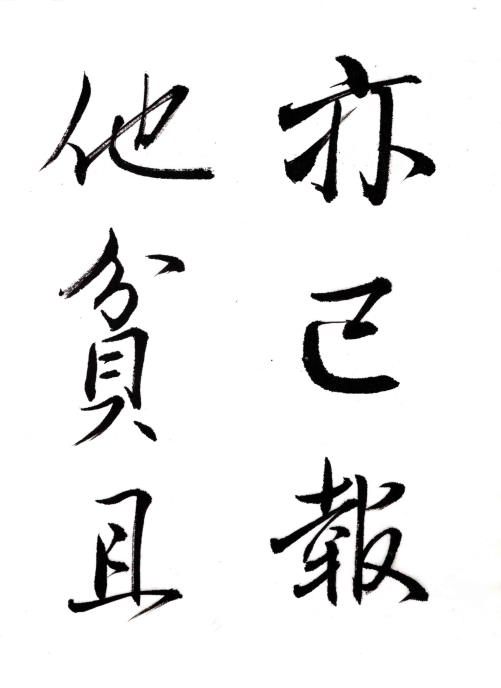 亦已報
他貧且